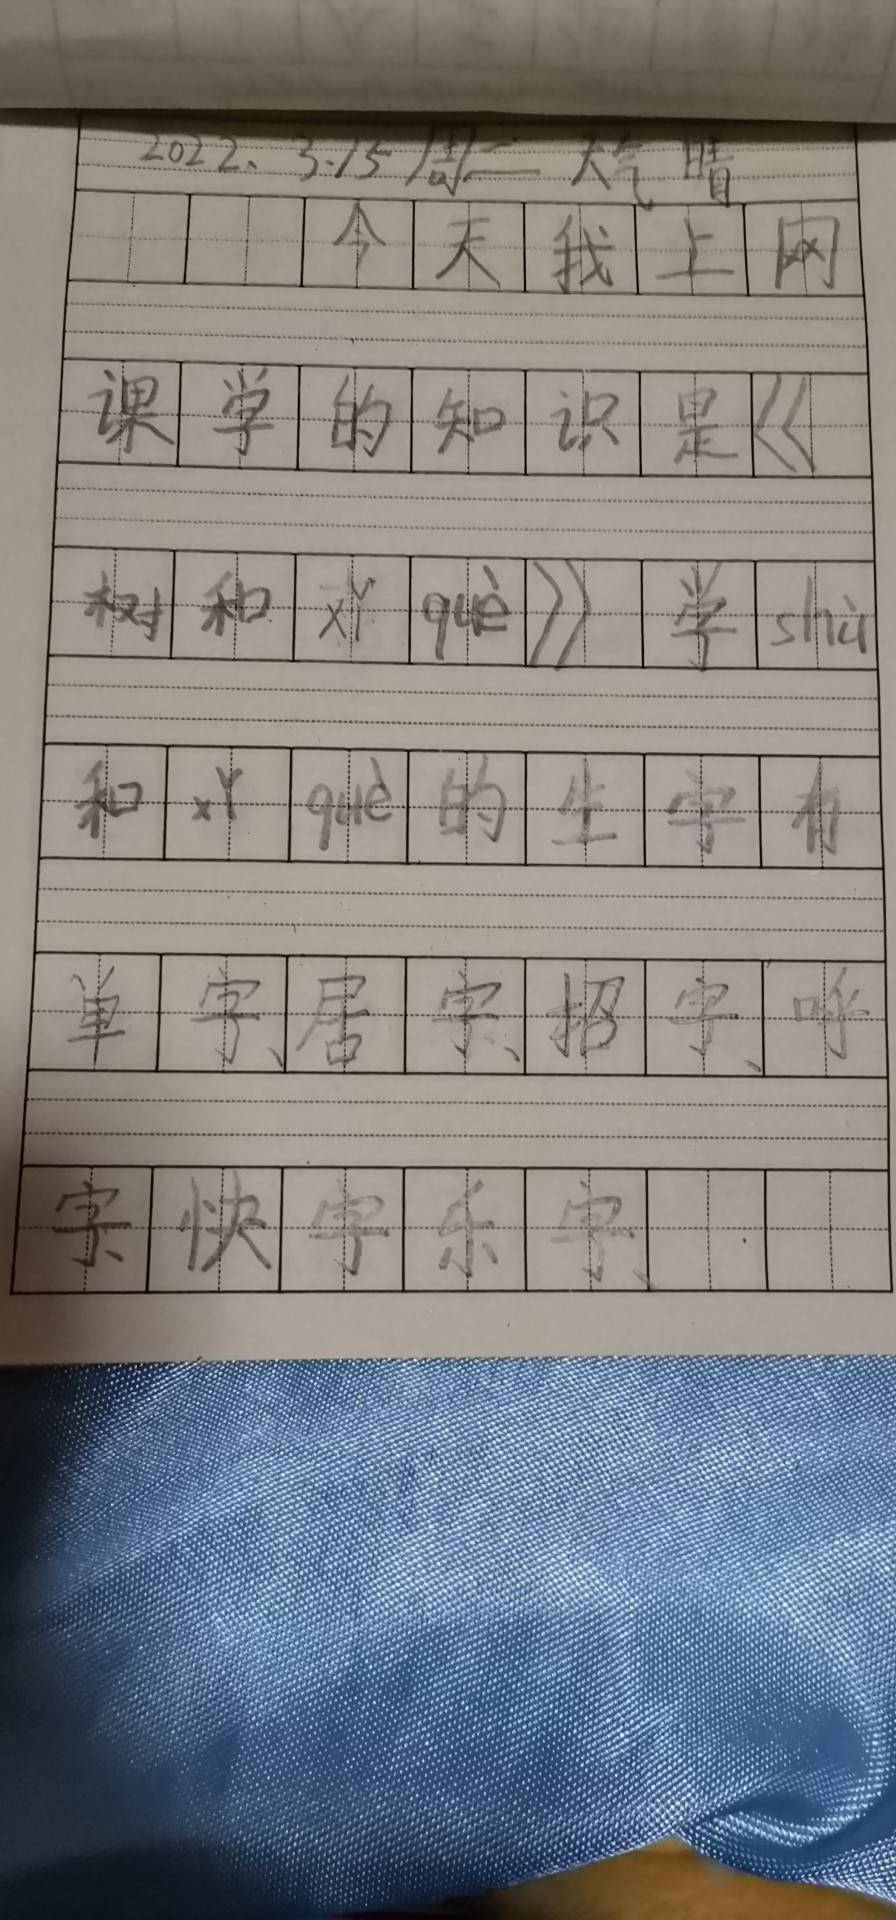 2022.3.15周二 天气晴
今天我上网
课学的知识是《
树和xǐ què》学shù
和xǐ què的生字有
单字、居字、招字、呼
字、快字乐字、